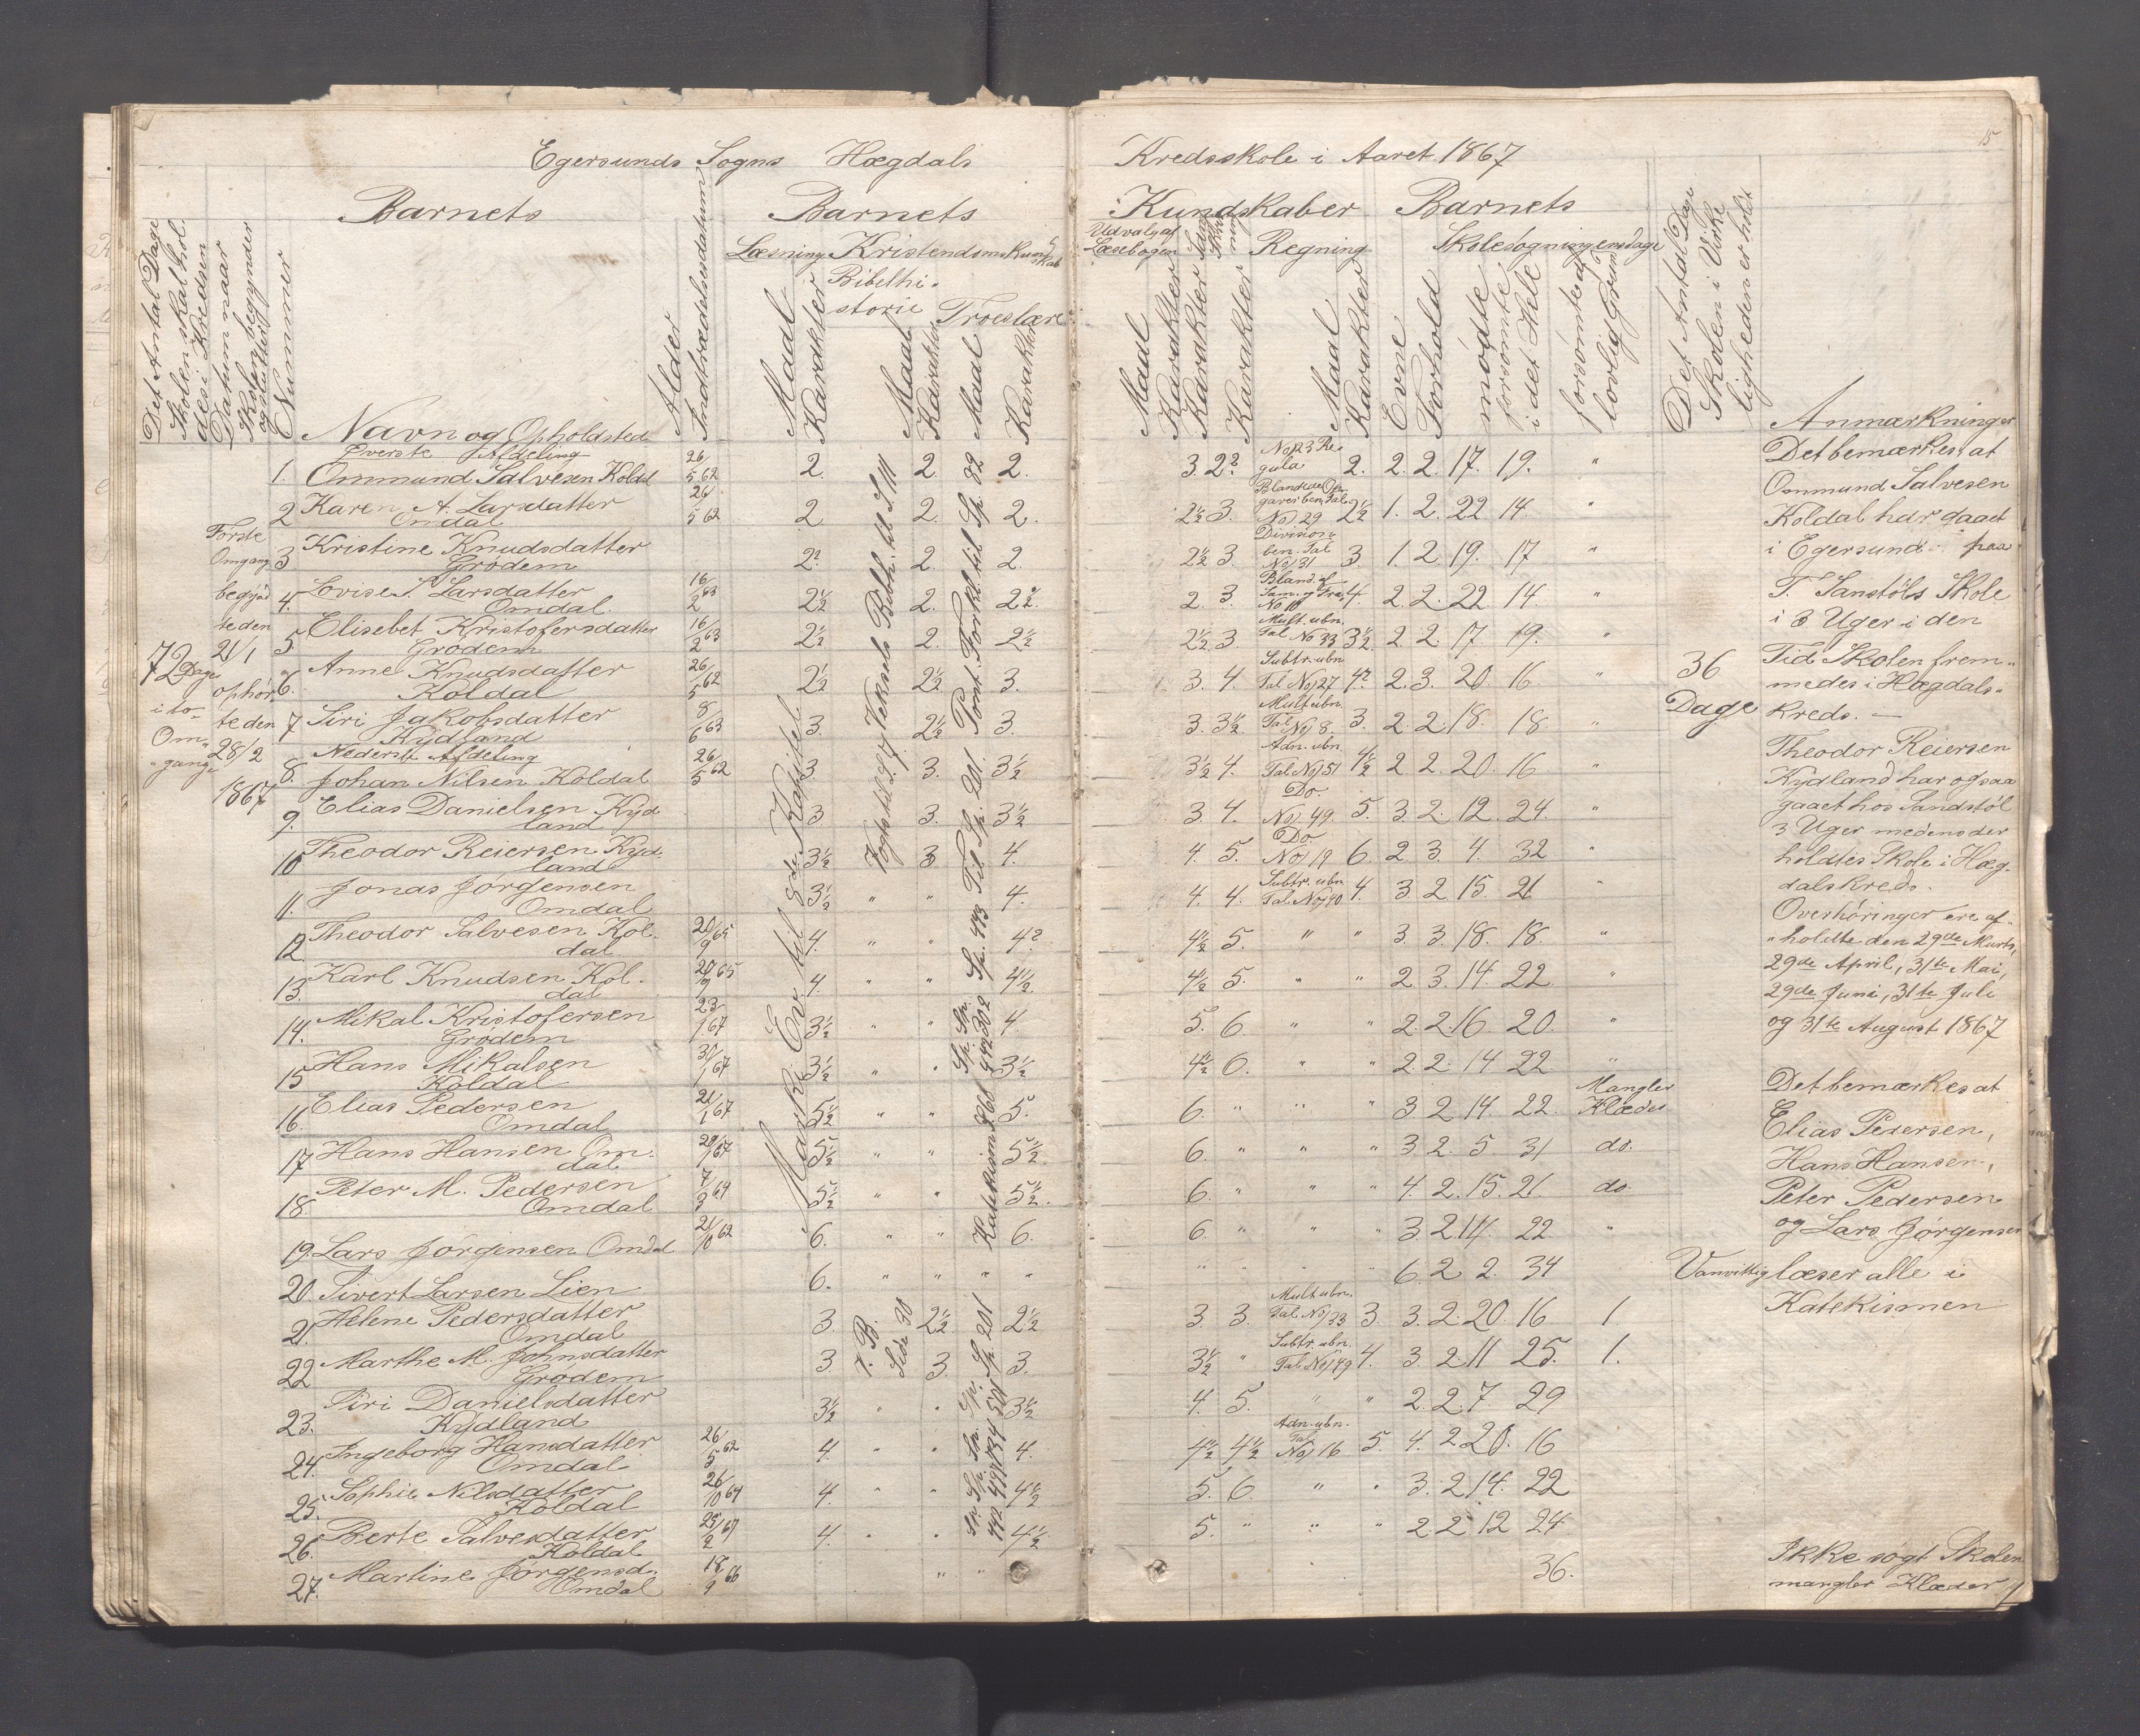 15
Egersunds Sogns Hægdals Kredsskole i Aaret 1867
Barnets Barnets Kundskaber Barnets
Læsning Kristendomskundskab Udvalg af Læsebogen Sang Skrivning Regning Skolesøgning Dage
Bibelhistorie Troeslære
Det Antal Dage Skolen skal holdes i Kredsen
Datum naar Skolen begynder og slutter
Nummer
Navn og Opholdsted
Alder
Indtrædelsesdatum
Maal Karakter Maal Karakter Maal Karakter
Maal Karakter Karakter Karakter Maal Karakter Evne Forhold mødte forsømte i det Hele forsømte af lovlig Grund
Det Antal Dage Skolen i Virkeligheden er holdt
Anmærkninger
72 Dage i to Omgange
Første Omgang begyndte den 21/1 ophørte den 28/2 1867
Maski Ev til 8de Kapitel
Vogts til S. 97 Veksels Bibh. til S. 111
Pont. Forkl. til Sp. 82
Til Sp. 201
Sp. 473
Sp. Sp. 442 302
Katekism
V. B. Side 30
Sp. 201
Øverste Afdeling
1. Ommund Salvesen Koldal 26/5 62 2. 2. 2. 3. 2? No 23 Regula 2. 2. 2. 17. 19. "
2 Karen A. Larsdatter Omdal 26/5 62 2 2. 2. 2½ 3. No 29 2½ 1. 2. 22. 14. "
3 Kristine Knudsdatter Grødem 2? 2. 2. 2½ 3. Division ben. Tal No 31 3. 1. 2. 19. 17 "
4. Lovise S. Larsdatter Omdal 16/2 63 2½ 2. 2½. 2 3. Bland. af No 10 4. 2. 2. 22. 14. "
5. Elisebet Kristofersdatter Grødem 16/2 63 2½ 2. 2½ 2½ 3. Mult. ubn. Tal No 33 3½ 2. 2. 17 19. "
6. Anne Knudsdatter Koldal 26/5 62 2½ 2½ 3. 3. 4. Subtr. ubn. Tal No 27 4? 2. 3. 20. 16. "
7 Siri Jakobsdatter Kydland 8/6 63 3. 2½ 3. 3. 3½ Mult. ubn. Tal No 8. 3. 2. 2. 18. 18. "
Nederste Afdeling
8. Johan Nilsen Koldal 26/5 62 3. 3. 3½ 3½ 4. Adn. ubn. Tal No 51 4½ 2 2. 20. 16 "
9. Elias Danielsen Kydland 3 3. 3½ 3. 4. Do. No 49. 5. 3. 2. 12. 24. "
10 Theodor Reiersen Kydland 3½ 3 4. 4. 5. Do. No 19 6. 2 3. 4. 32 "
11. Jonas Jørgensen Omdal 3½ " " 4. 4. 4. Subtr. ubn. Tal No 40 4. 3. 2. 15. 21 "
12. Theodor Salvesen Koldal 20/9 65 4. " " 4? 4½ 5. " " 3. 3. 18. 18. "
13. Karl Knudsen Koldal 20/9 65 4. " " 4½. 4½ 5. " " 2. 3. 14. 22. "
14. Mikal Kristofersen Grødem 23/1 67 3½ " " 4. 5. 6. " " 2. 2. 16. 20. "
15 Hans Mikalsen Koldal 30/1 67 3½ " " 3½ 4½ 6. " " 2. 2. 14 22 "
16. Elias Pedersen Omdal 21/1 67 5½ " " 5. 6. " " " 3 2 14. 22. Mangler Klæder
17 Hans Hansen Omdal 29/1 67 5½ " " 5½. 6. " " " 3 2. 5 31 do.
18 Peter M. Pedersen Omdal 7/3 64 5½ " " 5½. 6. " " " 4. 2. 15. 21. do.
19. Lars Jørgensen Omdal 21/10 62 6. " " 6. 6. " " " 3. 2. 14. 22. "
20. Sivert Larsen Lien 6. " " " " " " " 6. 2 2. 34 Vanvittig
21. Helene Pedersdatter Omdal 3. 2½ 2½ 3. 3. Mult. ubn. Tal No 33 3. 3. 2. 20. 16 1.
22 Marthe M. Johnsdatter Grødem 3. 3. 3. 3½ " Subtr. ubn. Tal No 49 4. 3. 2. 11 25. 1.
23. Siri Danielsdatter Kydland 3½ " " 3½ 4. 5. " " 2. 2. 7. 29
24. Ingeborg Hansdatter Omdal 26/5 62 4. " " 4. 4½ 4½ Adn. ubn. Tal No 16 5. 4. 2. 20. 16
25. Sophie Nilsdatter Koldal 26/10 64 4. " " 4½ 5. 6. " " 3. 2. 14. 22
26. Berte Salvesdatter Koldal 25/2 67 4. " " 4½ 5. " " " 2. 2 12 24
27. Martine Jørgensd. Omdal 18/9 66 " " 36.
36 Dage
Det bemærkes at
Ommund Salvesen
Koldal har gaaet
i Egersund paa
T. Sanstøls Skole
i 3 Uger i den
Tid Skolen frem„
medes i Hægdals„
kreds. —
Theodor Reiersen
Kydland har ogsaa
gaaet hos Sandstøl
3 Uger medens der
holdtes Skole i Hæg„
dalskreds.
Overhøringer ere af„
„holdte den 29de Marts,
29de April, 31te Mai,
29de Juni, 31te Juli
og 31te August 1867
Det bemærkes at
Elias Pedersen,
Hans Hansen,
Peter Pedersen
og Lars Jørgensen
læser alle i
Katekismen
Ikke søgt Skolen
mangler Klæder